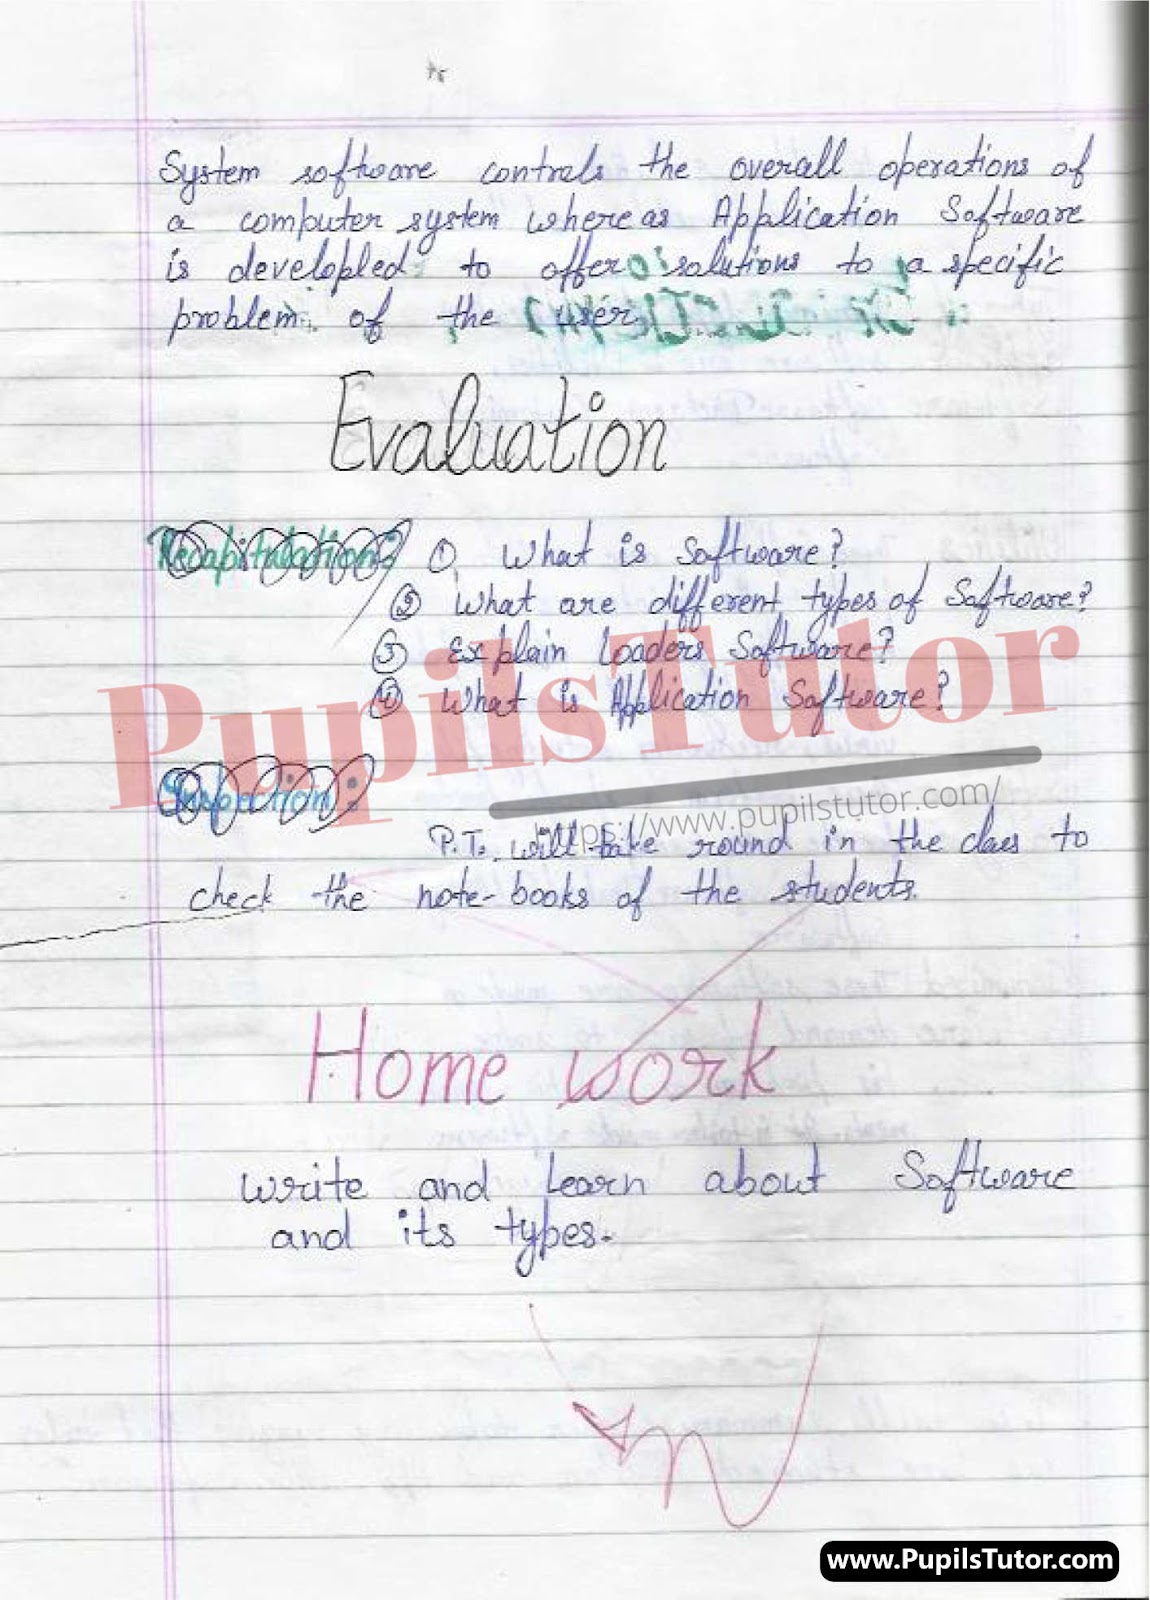 System software controls the overall operations of
a computer system where as Application Software
is developled to offer solutions to a specific
problem of the user
Evaluation
Recapitulation: ①. What is Software?
② What are different types of Software?
③ Explain Loaders Software?
④ What is Application Software?
PupilsTutor
https://www.pupilstutor.com/
:
P.T. will take round in the class to
check the note-books of the students.
Home work
write and learn about Software
and its types.
www.PupilsTutor.com